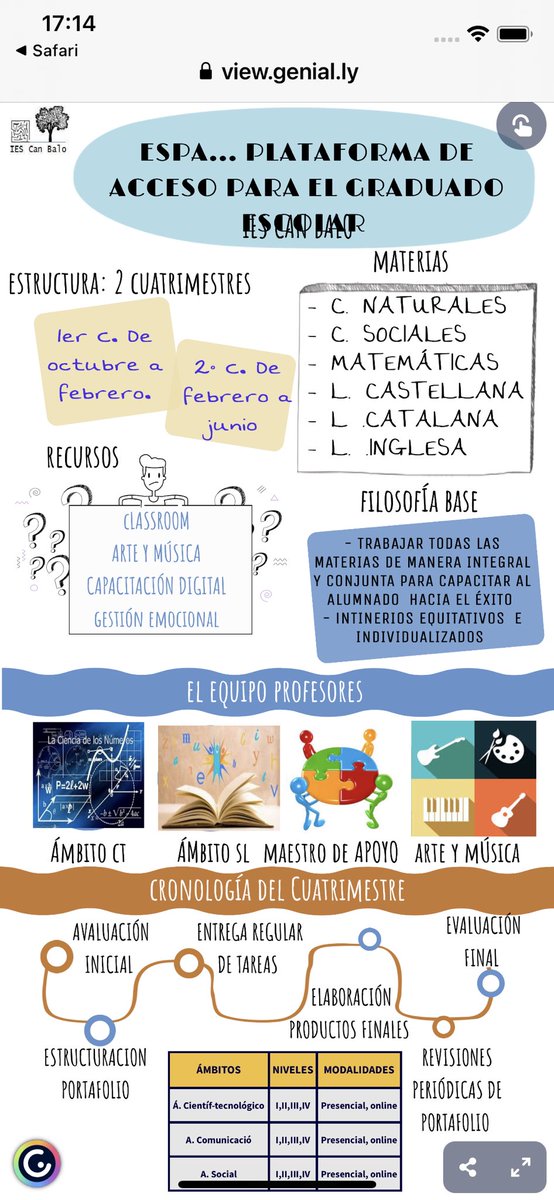 17:14
Safari
view.genial.ly
IES Can Balo
ESPA... PLATAFORMA DE
ACCESO PARA EL GRADUADO
ESCOLAR
IES CAN BALO
MATERIAS
ESTRUCTURA: 2 CUATRIMESTRES
1er C. De
octubre a
febrero.
2º C. De
febrero a
junio
- C. NATURALES
- C. SOCIALES
- MATEMÁTICAS
- L. CASTELLANA
- L .CATALANA
- L. .INGLESA
RECURSOS
cLASSROOM
ARTE Y MÚSICA
CAPACITACIÓN DIGITAL
GESTIÓN EMOCIONAL
FILOSOFÍA BASE
- TRABAJAR TODAS LAS
MATERIAS DE MANERA INTEGRAL
Y CONJUNTA PARA CAPACITAR AL
ALUMNADO HACIA EL ÉXITO
- INTINERIOS EQUITATIVOS E
INDIVIDUALIZADOS
EL EQUIPO PROFESORES
La Ciencia de los Números
P=2ℓ+2w
ÁMBITO CT
ÁMbITO SL
MAESTRO DE APOYO
ARTE Y MÚSICA
CRONOLOGÍA DEL CUATRIMESTRE
AVALUACIÓN
INICIAL
ENTREGA REGULAR
DE TAREAS
EVALUACIÓN
FINAL
ELABORACIÓN
PRODUCTOS FINALES
ESTRUCTURACION
PORTAFOLIO
REVISIONES
PERIÓDICAS DE
PORTAFOLIO
ÁMBITOS NIVELES MODALIDADES
Á. Científ-tecnológico I,II,III,IV Presencial, online
A. Comunicació I,II,III,IV Presencial, online
A. Social I,II,III,IV Presencial, online